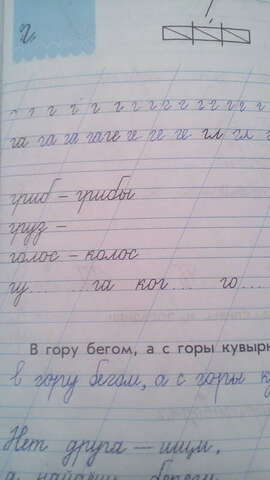 г
г г г г г г г г г г г г г г г
га га га гаге ге ге ге гл гл
гриб – грибы
груз –
голос – колос
гу... ...га ког... го...
В гору бегом, а с горы кувыр
в гору бегом, а с горы к
Нет друга – ищи,
а найдёшь – береги